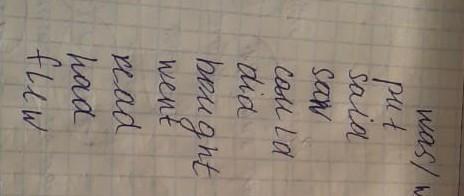 was/w
put
said
saw
could
did
brought
went
read
had
flew